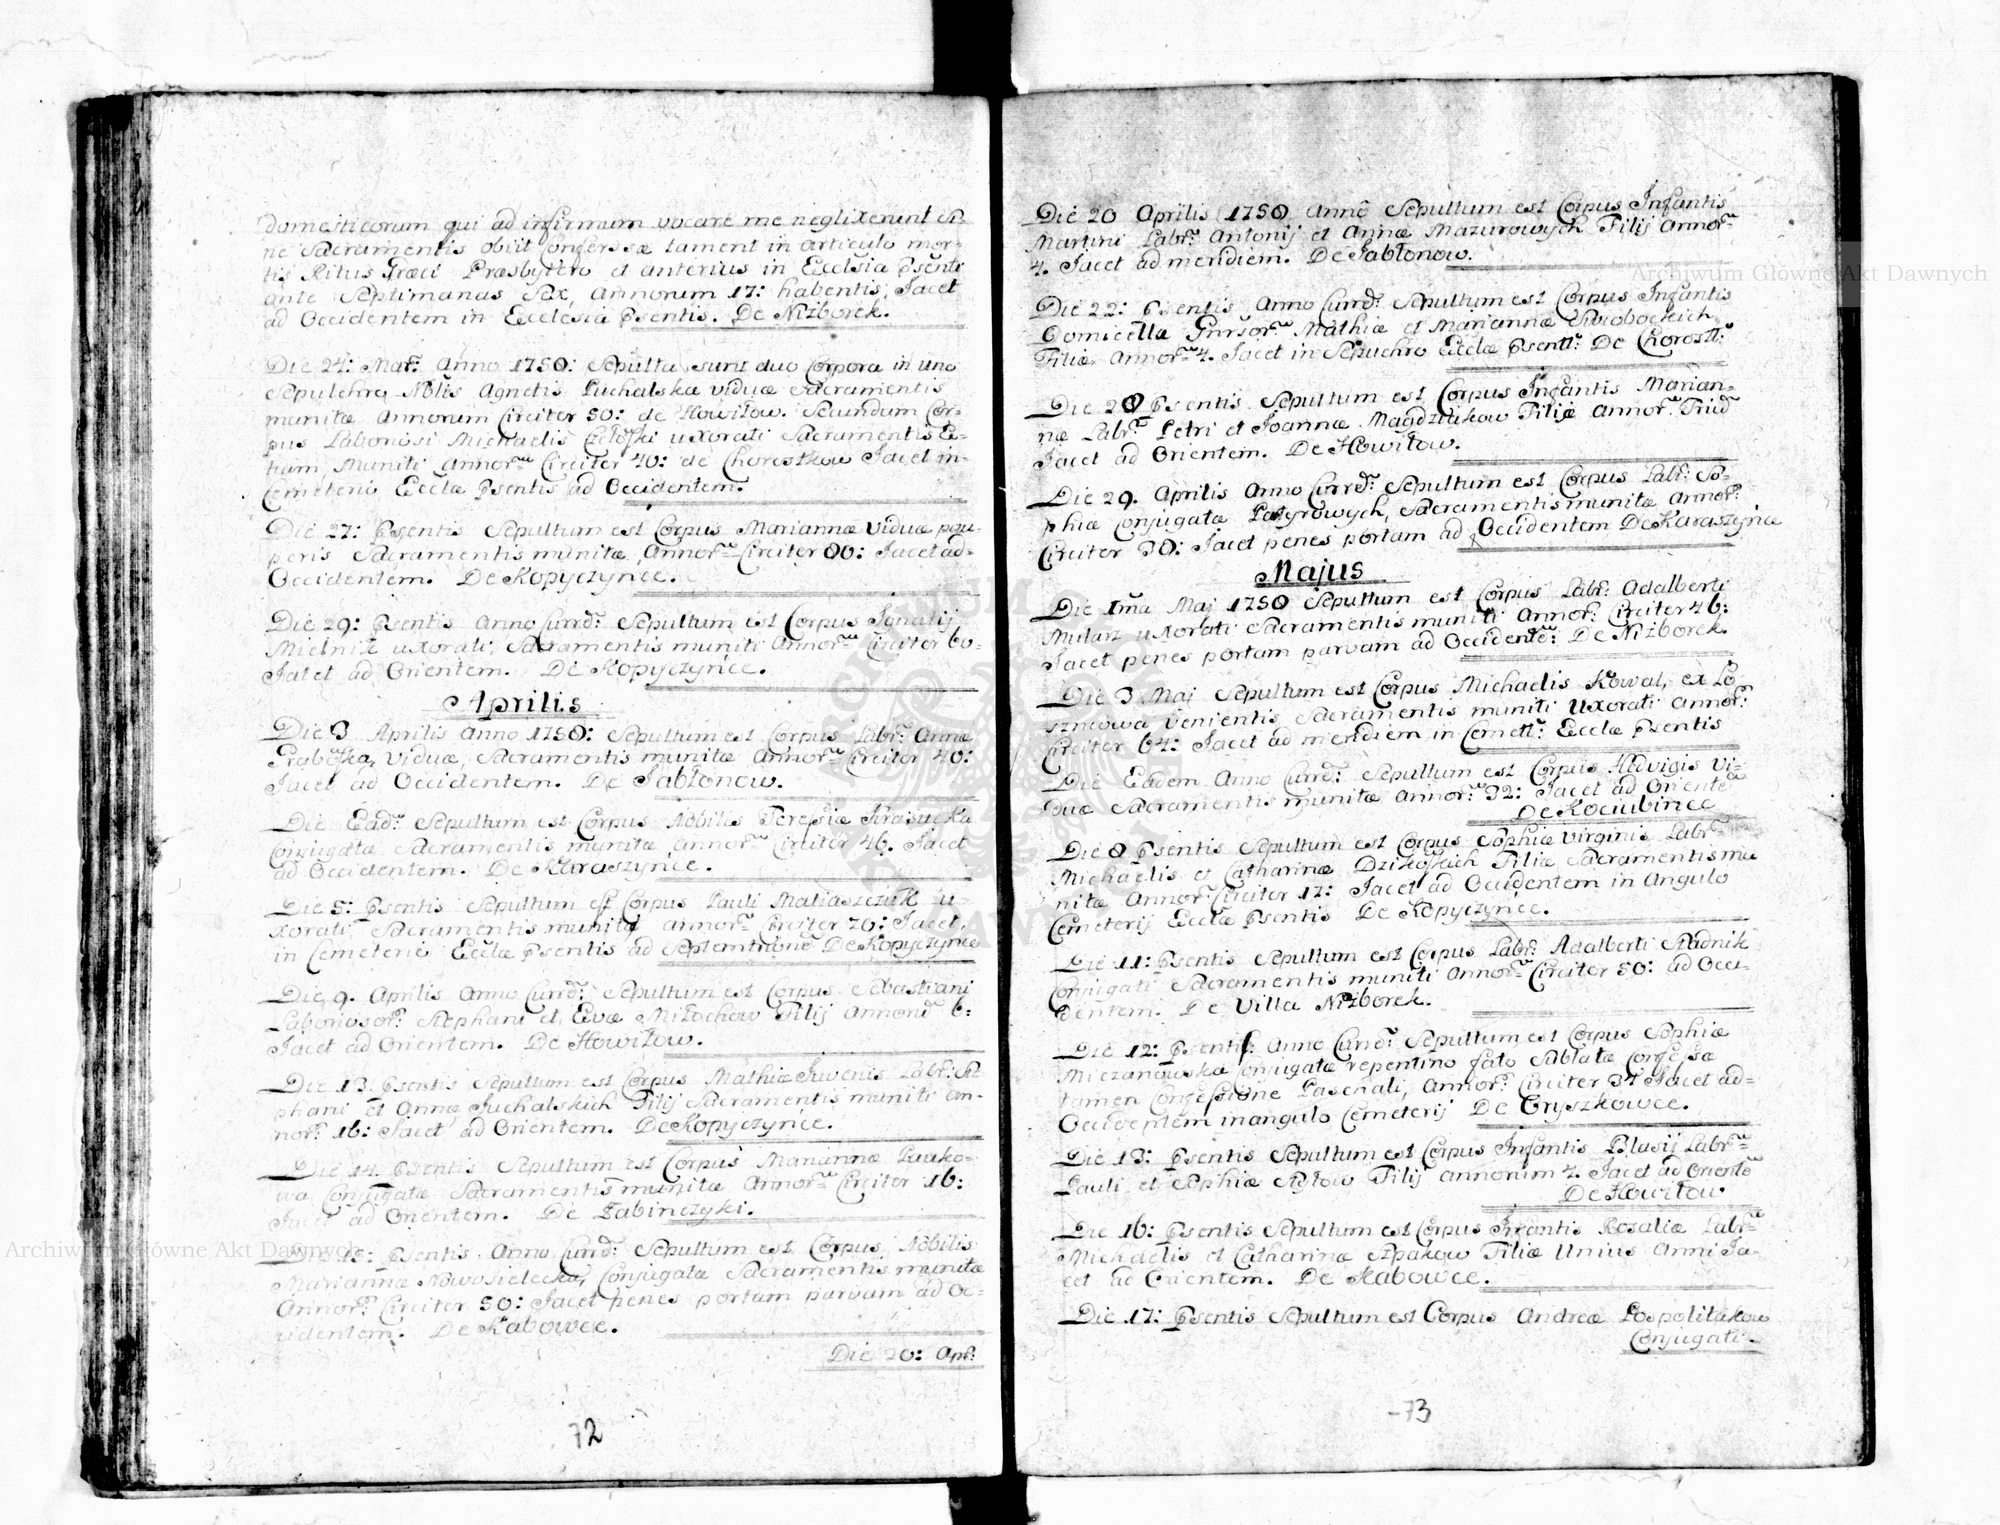 domesticorum qui ad infirmum vocare me neglixerunt Si-
ne Sacramentis obiit Confessæ tament in articulo mor-
tis Ritus Græci Præsbytero et anterius in Ecclesia Psenti
ante Septimanas Sex, Annorum 17: habentis, Jacet
ad Occidentem in Ecclesia Psentis. De Niżborek.
Die 24: Mar: Anno 1750: Sepulta sunt duo Corpora in uno
Sepulchro Nblis Agnetis Puchalska viduæ Sacramentis
munitæ Annorum Circiter 50: de Howiłow. Secundum Cor-
pus Laboriosi Michaelis uxorati Sacramentis Et-
tium, Muniti Annor: Circiter 40: de Chorostkow Jacet in-
Cemeterio Ecclæ Psentis ad Occidentem.
Die 27: Psentis Sepultum est Corpus Mariannæ viduæ pau-
peris Sacramentis munitæ, Annor: Circiter 80: Jacet ad-
Occidentem. De Kopyczynce.
Die 29: Psentis Anno Currd: Sepultum est Corpus Ignatij
Mielnik uxorati, Sacramentis muniti Annor: Circiter 60-
Jacet ad Orientem. De Kopyczynce.
Aprilis
Die 3 Aprilis Anno 1750: Sepultum est Corpus Labr: Annæ
viduæ, Sacramentis munitæ Annor: Circiter 40:
Jacet ad Occidentem. De Jabłonow.
Die Ead: Sepultum est Corpus Nobilis Teresiæ Krasucka
Conjugatæ Sacramentis munitæ Annor: Circiter 46. Jacet
ad Occidentem. De Karaszynce.
Die 5: Psentis Sepultum est Corpus Pauli Matiaszczuk u-
xorati Sacramentis muniti annor: Circiter 70: Jacet,
in Cemeterio Ecclæ Psentis ad Septemtrione De Kopyczynce
Die 9. Aprilis Anno Currd: Sepultum est Corpus Sebastiani
Laboriosor: Stephani et Evæ Miłochow Filij Annoru 6:
Jacet ad Orientem. De Howiłow.
Die 13. Psentis Sepultum est Corpus Mathiæ Juvenis Labr: Ste
phani et Annæ Suchalskich Filij Sacramentis muniti An-
nor: 16: Jacet ad Orientem. De Kopyczynce.
Die 14. Psentis Sepultum est Corpus Mariannæ Pauko-
wa Conjugatæ Sacramentis munitæ Annor: Circiter 16:
Jacet ad Orientem. De Łabinczyki.
Die 15: Psentis Anno Currd: Sepultum est Corpus Nobilis
Mariannæ Nowosielecka, Conjugatæ Sacramentis munitæ
Annor: Circiter 50: Jacet penes portam parvam ad Oc-
cidentem. De Kabowce.
Die 20: Apr:
72
Die 20 Aprilis 1750 Anno Sepultum est Corpus Infantis
Martini Labr: Antonij et Annæ Mazurowych Filij Annor:
4. Jacet ad meridiem. De Jabłonow.
Die 22: Psentis Anno Currd: Sepultum est Corpus Infantis
Domicellæ Gnrsor: Mathiæ et Mariannæ
Filiæ Annor: 4. Jacet in Sepulchro Ecclæ Psenti: De Chorostk:
Die 28 Psentis Sepultum est Corpus Infantis Marian-
næ Labr: Petri et Joannæ Magdziakow Filiæ Annor: Triu
Jacet ad Orientem. De Howiłow.
Die 29. Aprilis Anno Currd: Sepultum est Corpus Labr: So-
phiæ Conjugatæ Sacramentis munitæ Annor:
Circiter 30: Jacet penes portam ad Occidentem De Karaszynce
Majus
Die 1ma Maj 1750 Sepultum est Corpus Labr: Adalberti
Mularz uxorati Sacramentis muniti Annor: Circiter 46:
Jacet penes portam parvam ad Occidente: De Niżborek.
Die 3 Maj Sepultum est Corpus Michaelis Kowal, ex Lo
szniowa venientis Sacramentis muniti Uxorati Annor:
Circiter 64: Jacet ad meridiem in Cemett: Ecclæ Psentis
Die Eadem Anno Currd: Sepultum est Corpus Hedvigis Vi-
duæ Sacramentis munitæ Annor: 32: Jacet ad Oriente
De Kociubince
Die 8 Psentis Sepultum est Corpus Sophiæ virginis Labr:
Michaelis et Catharinæ Filiæ Sacramentis mu
nitæ Annor: Circiter 17: Jacet ad Occidentem in Angulo
Cemeterij Ecclæ Psentis De Kopyczynce.
Die 11: Psentis Sepultum est Corpus Labr: Adalberti Stadnik
Conjugati Sacramentis muniti Annor: Circiter 50: ad Occi-
dentem. De Villa Niżborek.
Die 12: Psentis Anno Currd: Sepultum est Corpus Sophiæ
Miczanowska Conjugatæ repentino fato Sublatæ Confessæ
tamen Confessione Paschali, Annor: Circiter 34 Jacet ad-
Occidentem in angulo Cemeterij De Oryszkowce.
Die 13: Psentis Sepultum est Corpus Infantis Blasij Labr:
Pauli et Sophiæ Filij annorum 4. Jacet ad Oriente
De Howiłow
Die 16: Psentis Sepultum est Corpus Infantis Rosaliæ Labr:
Michaelis et Catharinæ Szpakow Filiæ Unius Anni Ja-
cet ad Orientem. De Kabowce.
Die 17: Psentis Sepultum est Corpus Andreæ Pospolitakow
Conjugati-
-73
Archiwum Główne Akt Dawnych
Archiwum Główne Akt Dawnych